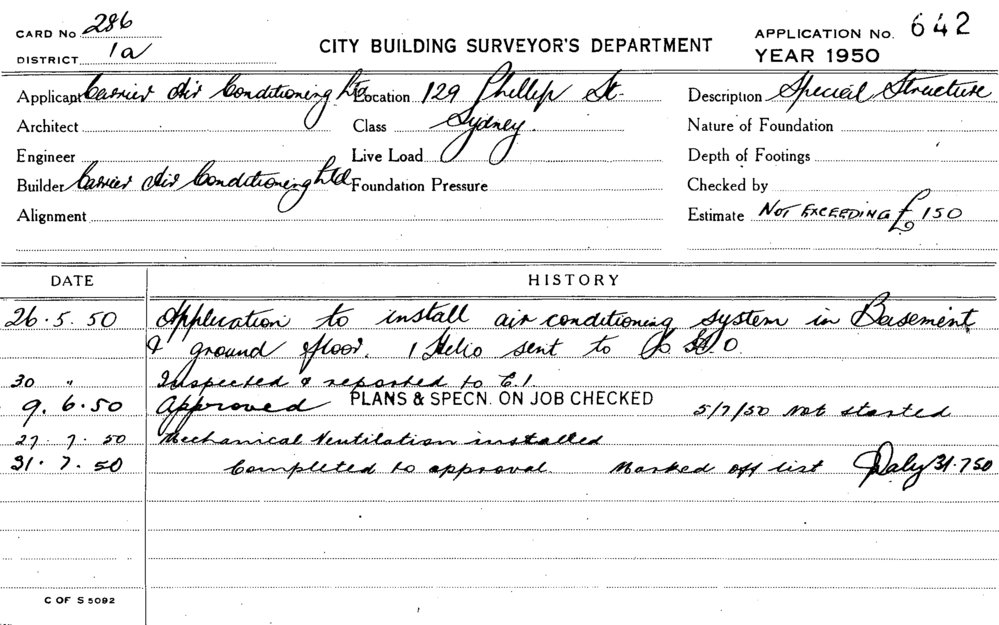 CARD No 286
DISTRICT 1a
CITY BUILDING SURVEYOR'S DEPARTMENT
APPLICATION No. 642
YEAR 1950
Applicant Carrier Air Conditioning Ltd Location 129 Phillip St. Description Special Structure
Architect Class Sydney. Nature of Foundation
Engineer Live Load Depth of Footings
Builder Carrier Air Conditioning Ltd Foundation Pressure Checked by
Alignment Estimate NOT EXCEEDING £150
DATE HISTORY
26.5.50 Application to install air conditioning system in Basement
& ground floor. 1 Helio sent to H.O.
30 " Inspected & reported to C.I.
9.6.50 Approved PLANS & SPECN. ON JOB CHECKED 5/7/50 Not started
27.7.50 Mechanical Ventilation installed
31.7.50 Completed to approval. Marked off list Daly 31.7.50
C OF S 5092